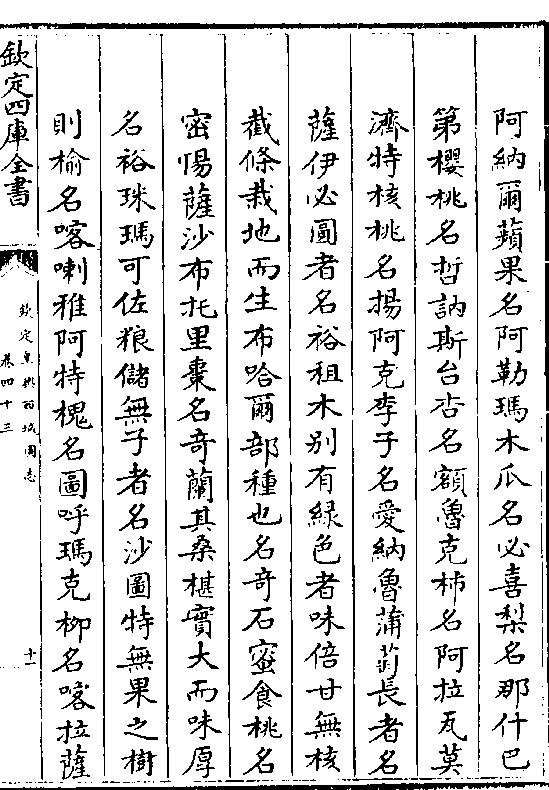 阿納爾蘋果名阿勒瑪木瓜名必喜梨名那什巴
第櫻桃名哲訥斯台杏名額魯克柿名阿拉瓦莫
濟特核桃名揚阿克李子名愛納魯蒲萄長者名
薩伊必圓者名裕租木别有綠色者味倍甘無核
截條栽地而生布哈爾部種也名奇石蜜食桃名
密惕薩沙布托里棗名奇蘭其桑椹實大而味厚
名裕珠瑪可佐粮儲無子者名沙圖特無果之樹
則榆名喀喇雅阿特槐名圖呼瑪克柳名喀拉薩
欽定四庫全書
欽定皇輿西域圖志
卷四十三
十一